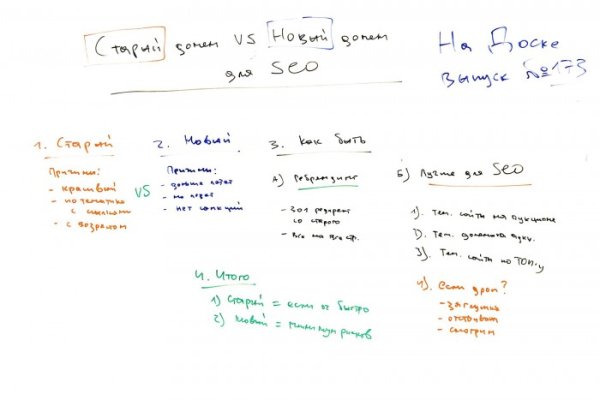 Старый домен VS Новый домен
для SEO
На Доске
выпуск №173
1. Старый
Причины:
- красивый
- по тематике
с ссылками
- с возрастом
VS
2. Новый
Причины:
- дольше
- не
- нет санкций
3. Как быть
А) Ребрендинг
- 301 редирект
со старого
- все на все стр.
Б) Лучше для SEO
1). Тем. сайты на аукционе
2). Тем. домены аукц.
3). Тем. сайты по ТОП-у
4). если дроп?
- заглушка
- отстойник
- смотрим
4. Итого
1) Старый = если оч быстро
2) Новый = минимум рисков